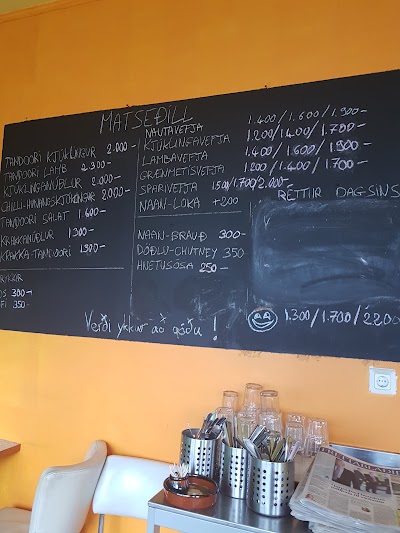 MATSEÐILL
TANDOORI KJÚKLINGUR 2.000-
TANDOORI LAMB 2.300-
KJÚKLINGANÚÐLUR 2.000-
CHILLI-HUNANGSKJÚKLINGUR 2000-
TANDOORI SALAT 1.600-
KRAKKANÚÐLUR 1300-
KRAKKA-TANDOORI 1300-
300-
350-
NAUTAVEFJA 1.400/1.600/1.900-
KJÚKLINGAVEFJA 1.200/1.400/1.700-
LAMBAVEFJA 1.400/1.600/1.900-
GRÆNMETISVEFJA 1.200/1.400/1.700-
SPARIVEFJA 1.500/1.700/2.000-
NAAN-LOKA +200
NAAN-BRAUÐ 300-
DÖÐLU-CHUTNEY 350
HNETUSÓSA 250-
RÉTTUR DAGSINS
1.300/1.700/2200
Verði ykkur að góðu!
FRÉTTABLAÐIÐ